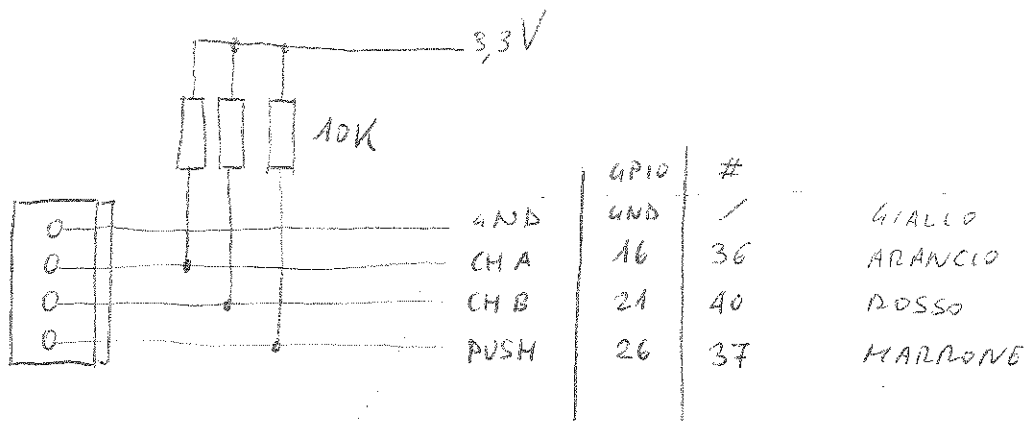 3,3V
10K
GPIO #
GND GND / GIALLO
CH A 16 36 ARANCIO
CH B 21 40 ROSSO
PUSH 26 37 MARRONE